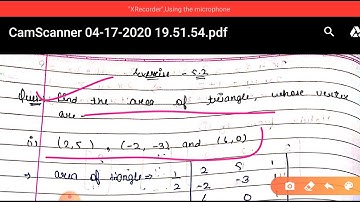 "XRecorder",Using the microphone
CamScanner 04-17-2020 19.51.54.pdf
Exercise - 5.2
Ques. find the area of triangle, whose vertex
are -
i) (2,5) , (-2, -3) and (6,0)
⇒ area of triangle → 1/2 | 2 5 1
-2 -3 1
6 0